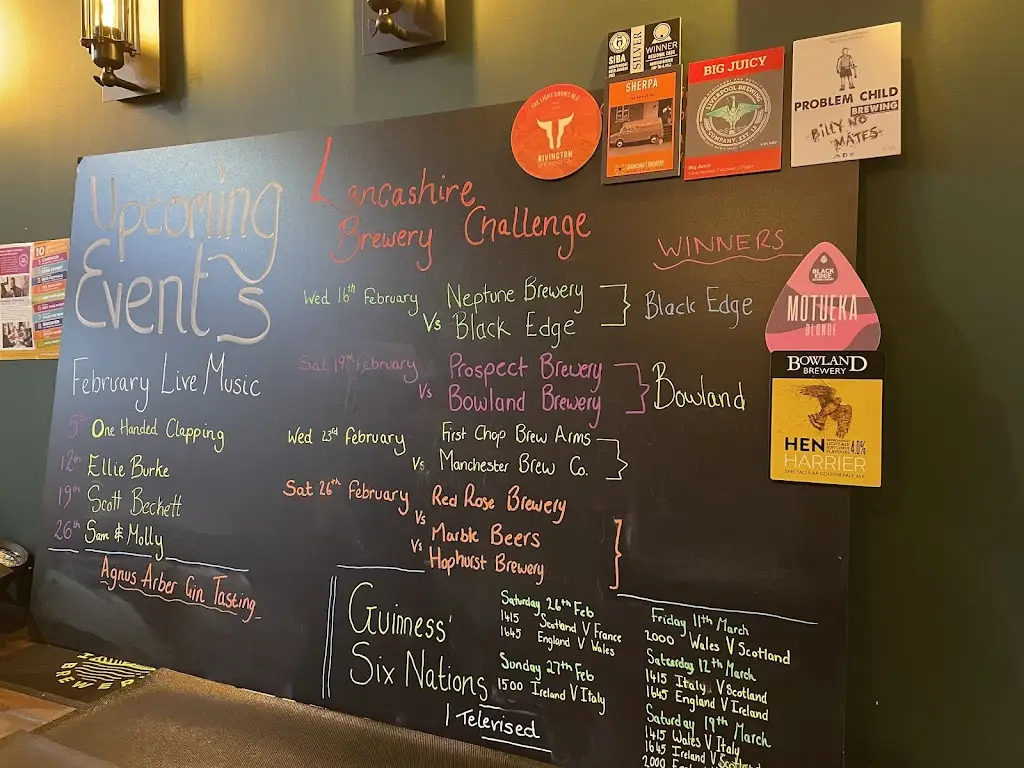 Upcoming
Events
February Live Music
5th One Handed Clapping
12th Ellie Burke
19th Scott Beckett
26th Sam & Molly
Agnus Arber Gin Tasting
Lancashire
Brewery Challenge
WINNERS
Wed 16th February Neptune Brewery
Vs Black Edge
Black Edge
Sat 19th February Prospect Brewery
Vs Bowland Brewery
Bowland
Wed 23rd February First Chop Brew Arms
Vs Manchester Brew Co.
Sat 26th February Red Rose Brewery
Vs Marble Beers
Vs Hophurst Brewery
Guinness'
Six Nations
Televised
Saturday 26th Feb
1415 Scotland V France
1645 England V Wales
Sunday 27th Feb
1500 Ireland V Italy
Friday 11th March
2000 Wales V Scotland
Saturday 12th March
1415 Italy V Scotland
1645 England V Ireland
Saturday 19th March
1415 Wales V Italy
1645 Ireland V Scotland
2000
RIVINGTON
SIBA
SILVER
WINNER
SHERPA
BIG JUICY
LIVERPOOL BREWING
Big Juicy
PROBLEM CHILD
BREWING
BILLY NO
MATES
BLACK
EDGE
MOTUEKA
BLONDE
BOWLAND
BREWERY
HEN
HARRIER
4.0%
SPECTACULAR GOLDEN PALE ALE
10